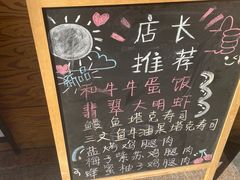 店长
推荐
新品
和牛牛蛋饭
翡翠大明虾
鳗鱼塔克寿司
三文鱼牛油果塔克寿司
盐烤鸡腿肉
梅子味苏鸡腿肉
黑柚子鸡腿肉